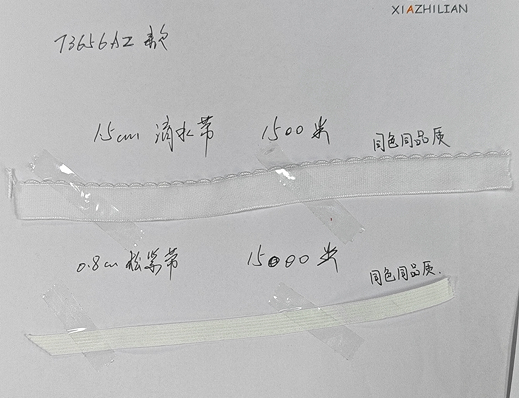 XIAZHILIAN
T3656AZ 款
1.5cm 滴水带 1500米 同色同品质
0.8cm 松紧带 15000米 同色同品质.